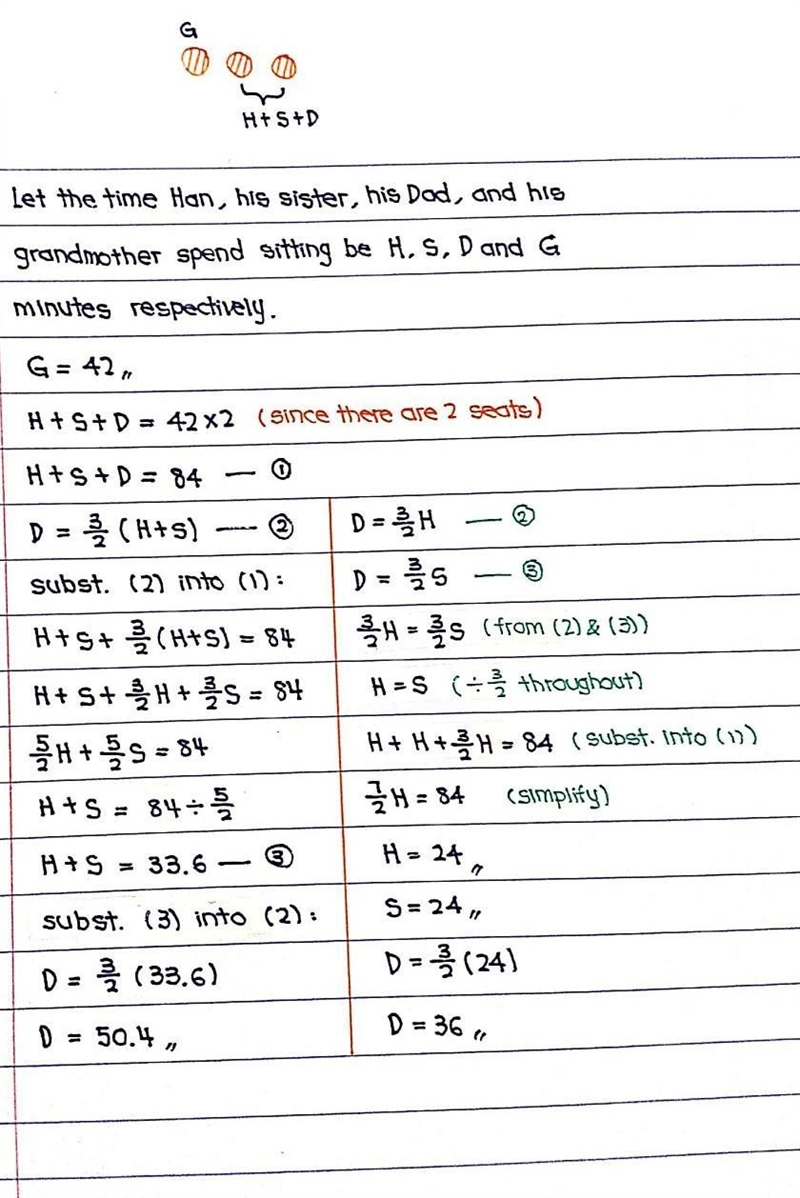 G
H+S+D
Let the time Han, his sister, his Dad, and his
grandmother spend sitting be H, S, D and G
minutes respectively.
G = 42 〃
H+S+D = 42×2 (since there are 2 seats)
H+S+D = 84 — ①
D = 3/2 (H+S) — ②
subst. (2) into (1):
H+S+ 3/2 (H+S) = 84
H+S+ 3/2 H + 3/2 S = 84
5/2 H + 5/2 S = 84
H+S = 84 ÷ 5/2
H+S = 33.6 — ③
subst. (3) into (2):
D = 3/2 (33.6)
D = 50.4 〃
D = 3/2 H — ②
D = 3/2 S — ③
3/2 H = 3/2 S (from (2) & (3))
H = S (÷ 3/2 throughout)
H + H + 3/2 H = 84 (subst. into (1))
7/2 H = 84 (simplify)
H = 24 〃
S = 24 〃
D = 3/2 (24)
D = 36 〃